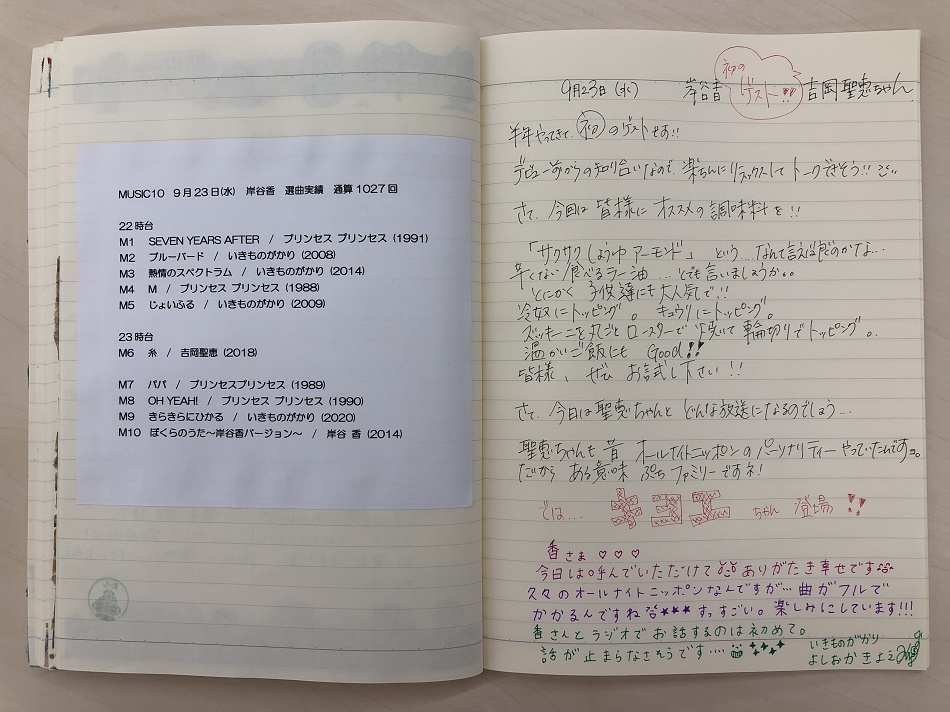 MUSIC10 9月23日(水) 岸谷香 選曲実績 通算1027回
22時台
M1 SEVEN YEARS AFTER / プリンセス プリンセス (1991)
M2 ブルーバード / いきものがかり (2008)
M3 熱情のスペクトラム / いきものがかり (2014)
M4 M / プリンセス プリンセス (1988)
M5 じょいふる / いきものがかり (2009)
23時台
M6 糸 / 吉岡聖恵 (2018)
M7 パパ / プリンセスプリンセス (1989)
M8 OH YEAH! / プリンセス プリンセス (1990)
M9 きらきらにひかる / いきものがかり (2020)
M10 ぼくらのうた~岸谷香バージョン~ / 岸谷 香 (2014)
9月23日(水) 岸谷香 初のゲスト!! 吉岡聖恵ちゃん
半年やってきて、初のゲストです!!
デビュー前からの知り合いなので、楽ちんにリラックスしてトークできそう!!
さて、今回は皆様にオススメの調味料を!!
「サクサクしょうゆアーモンド」という…なんて言えば良いのかな…
辛くない食べるラー油…とでも言いましょうか。。
とにかく子供達にも大人気で!!
冷奴にトッピング。キュウリにトッピング。
ズッキーニを丸ごとロースターで焼いて輪切りでトッピング。。
温かいご飯にもGood!!
皆様、ぜひお試し下さい!!
さて、今日は聖恵ちゃんとどんな放送になるのでしょう…
聖恵ちゃんも昔オールナイトニッポンのパーソナリティーやっていたんですョ。
だからある意味ぷちファミリーですネ!
では… キヨエ ちゃん 登場!!
香さま ♡♡♡
今日は呼んでいただけてありがたき幸せです
久々のオールナイトニッポンなんですが…曲がフルで
かかるんですね★★★すっすごい。楽しみにしています!!!
香さんとラジオでお話するのは初めて。
話が止まらなさそうです….
いきものがかり
よしおかきよえ